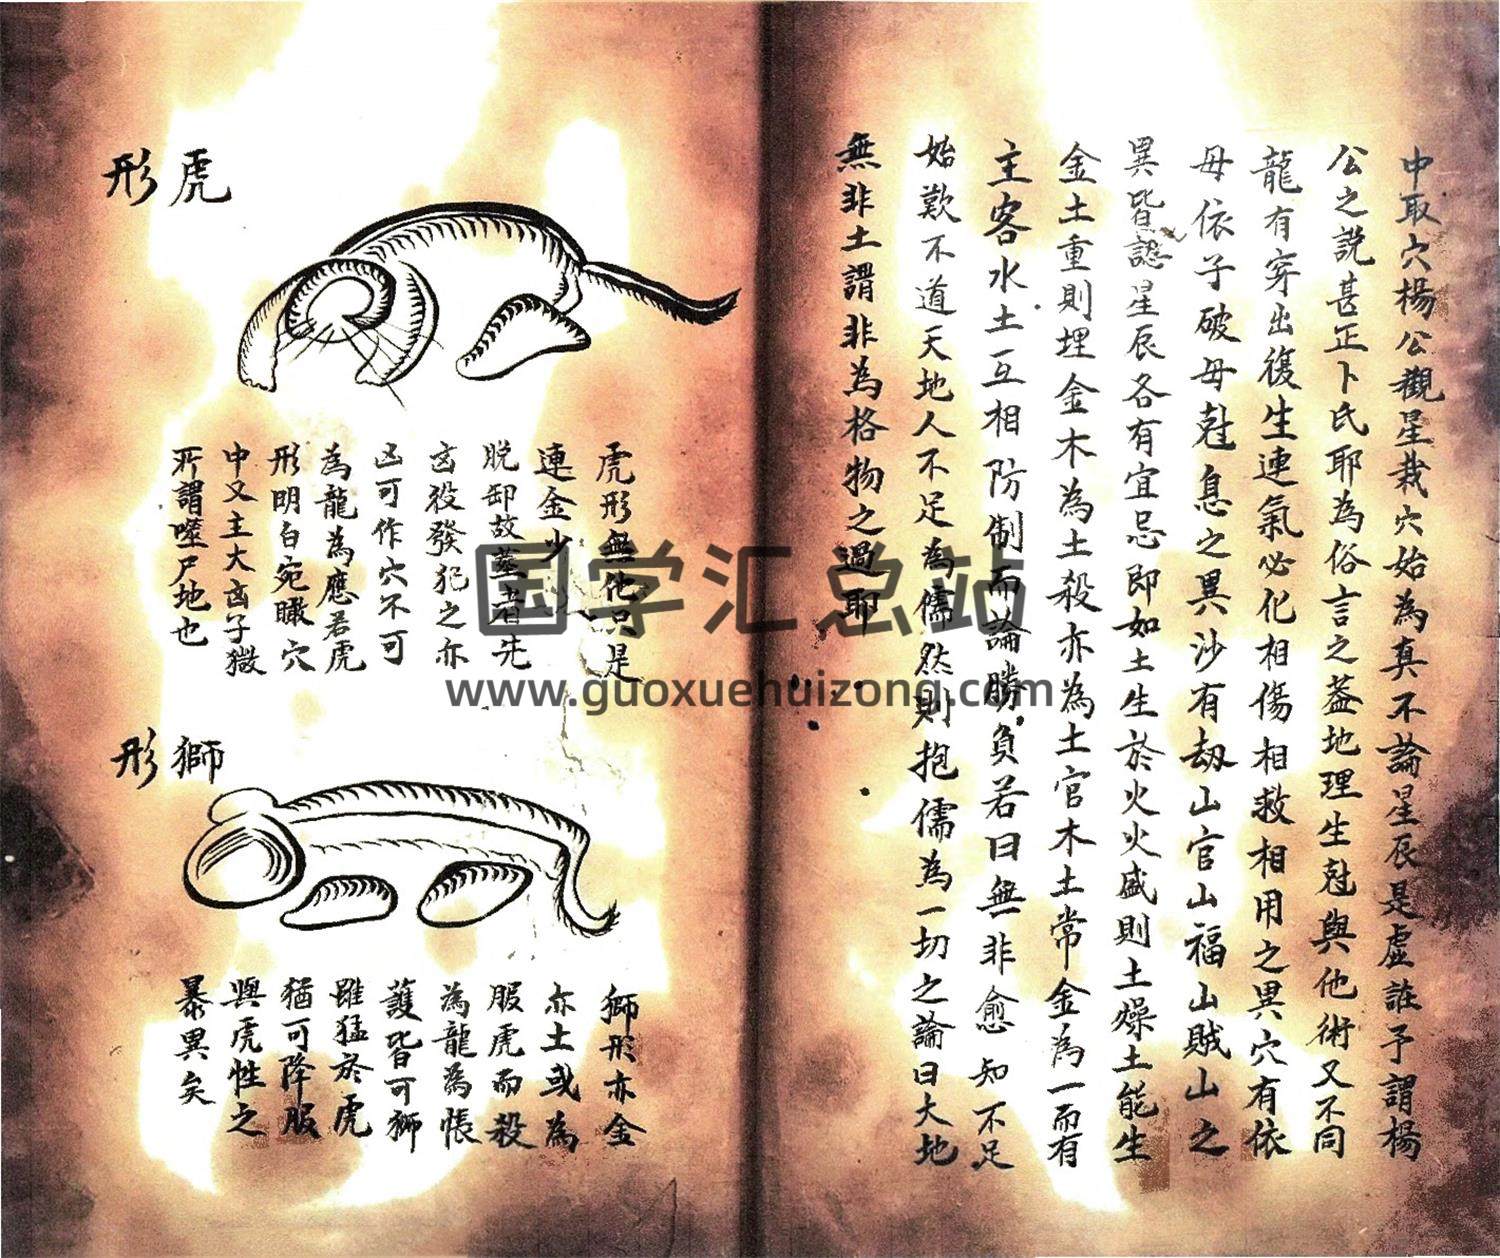 中取穴楊公觀星栽穴始為真不論星辰是虛誑予謂楊
公之説甚正卜氏耶為俗言之葢地理生尅與他術又不同
龍有穿出復生連氣必化相傷相救相用之異穴有依
母依子破母尅息之異沙有劫山官山福山賊山之
異皆認星辰各有宜忌即如土生於火火盛則土燥土能生
金土重則埋金木為土殺亦為土官木土常金為一而有
主客水土互相防制而論勝負若曰無一非愈知不足
始歎不道天地人不足為儒然則抱儒為一切之論曰大地
無非土謂非為格物之過耶
虎形
虎形無他只是
連金少
脱卸故葬者先
發犯之亦
凶可作穴不可
為龍為應若虎
形明白宛瞰穴
中又主大凶子獗
所謂噬尸地也
獅形
獅形亦金
亦土或為
服虎而殺
為龍為帳
護皆可獅
雖猛於虎
猶可降服
與虎性之
暴異矣
国学汇总站
www.guoxuehuizong.com